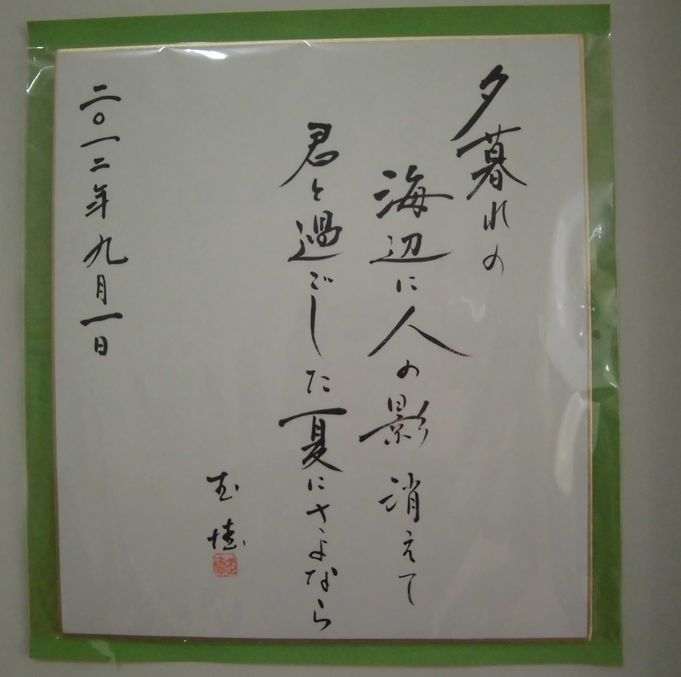 夕暮れの
海辺に人の影消えて
君と過ごした夏にさよなら
二〇一二年九月一日